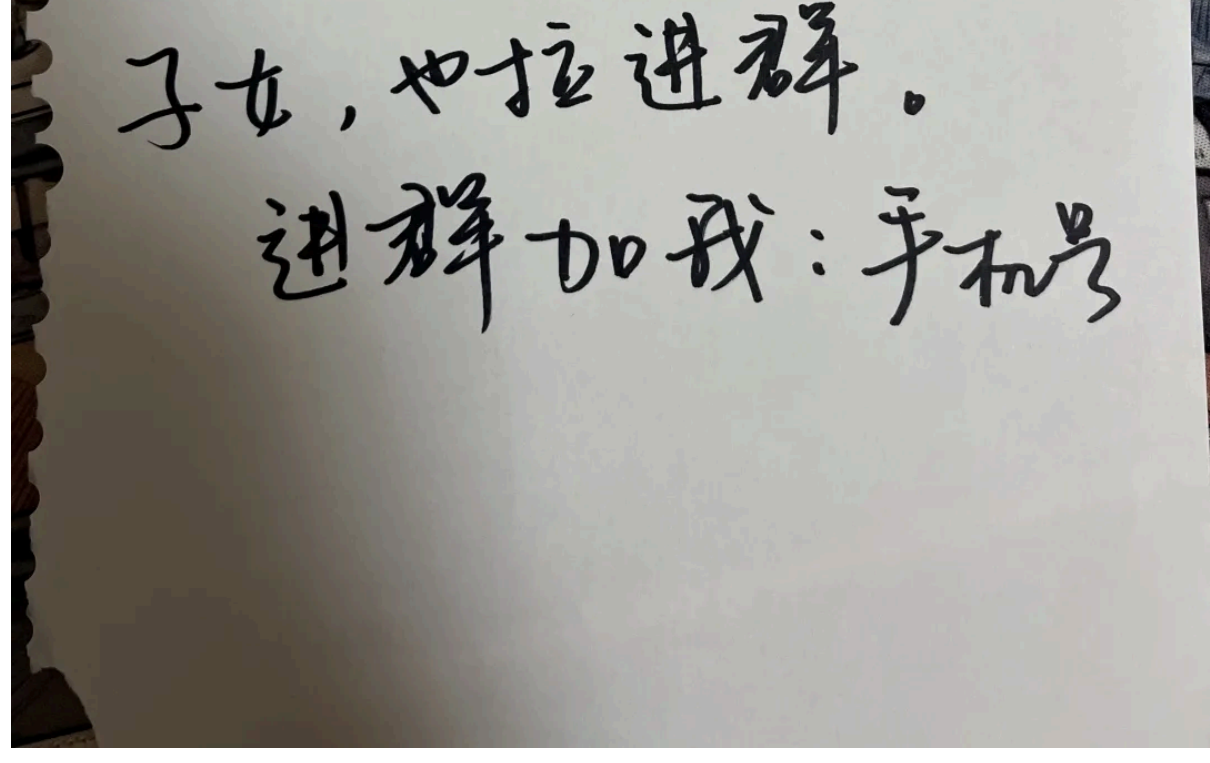 子女，也拉进群。
进群加我：手机号